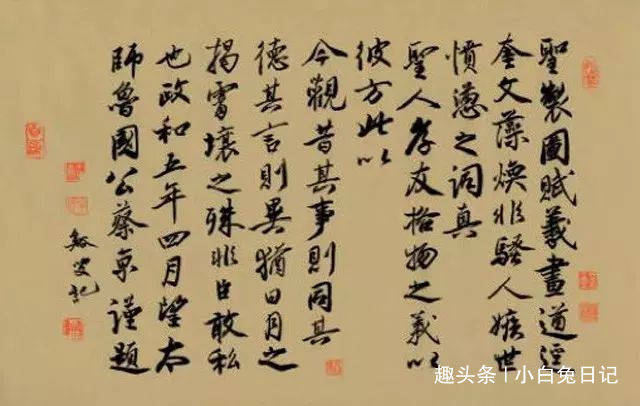 聖製圖賦羲畫道經
奎文藻煥非騷人嫉世
憤懣之词真
聖人孝友格物之義以
彼方此以
今觀昔其事則同其
德其言則異猶日月之
揭霄壤之殊非臣敢私
也政和五年四月望太
師魯國公蔡京謹題
叟記
趣头条 | 小白兔日记